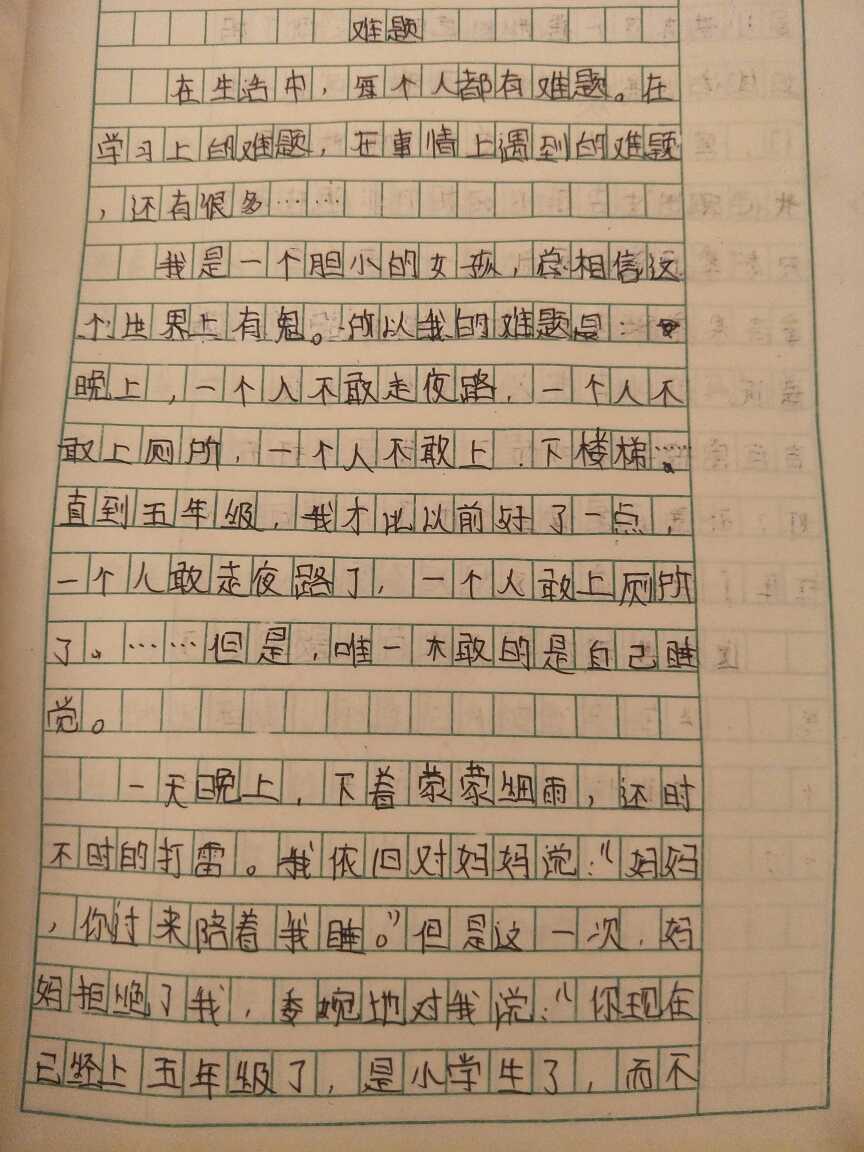 难题
在生活中，每个人都有难题。在
学习上的难题，在事情上遇到的难题
，还有很多……
我是一个胆小的女孩，总相信这
个世界上有鬼。所以我的难题是：
晚上，一个人不敢走夜路，一个人不
敢上厕所，一个人不敢上、下楼梯……。
直到五年级，我才比以前好了一点，
一个人敢走夜路了，一个人敢上厕所
了。……但是，唯一不敢的是自己睡
觉。
一天晚上，下着蒙蒙细雨，还时
不时的打雷。我依旧对妈妈说：“妈妈
，你过来陪着我睡。”但是这一次，妈
妈拒绝了我，委婉地对我说：“你现在
已经上五年级了，是小学生了，而不